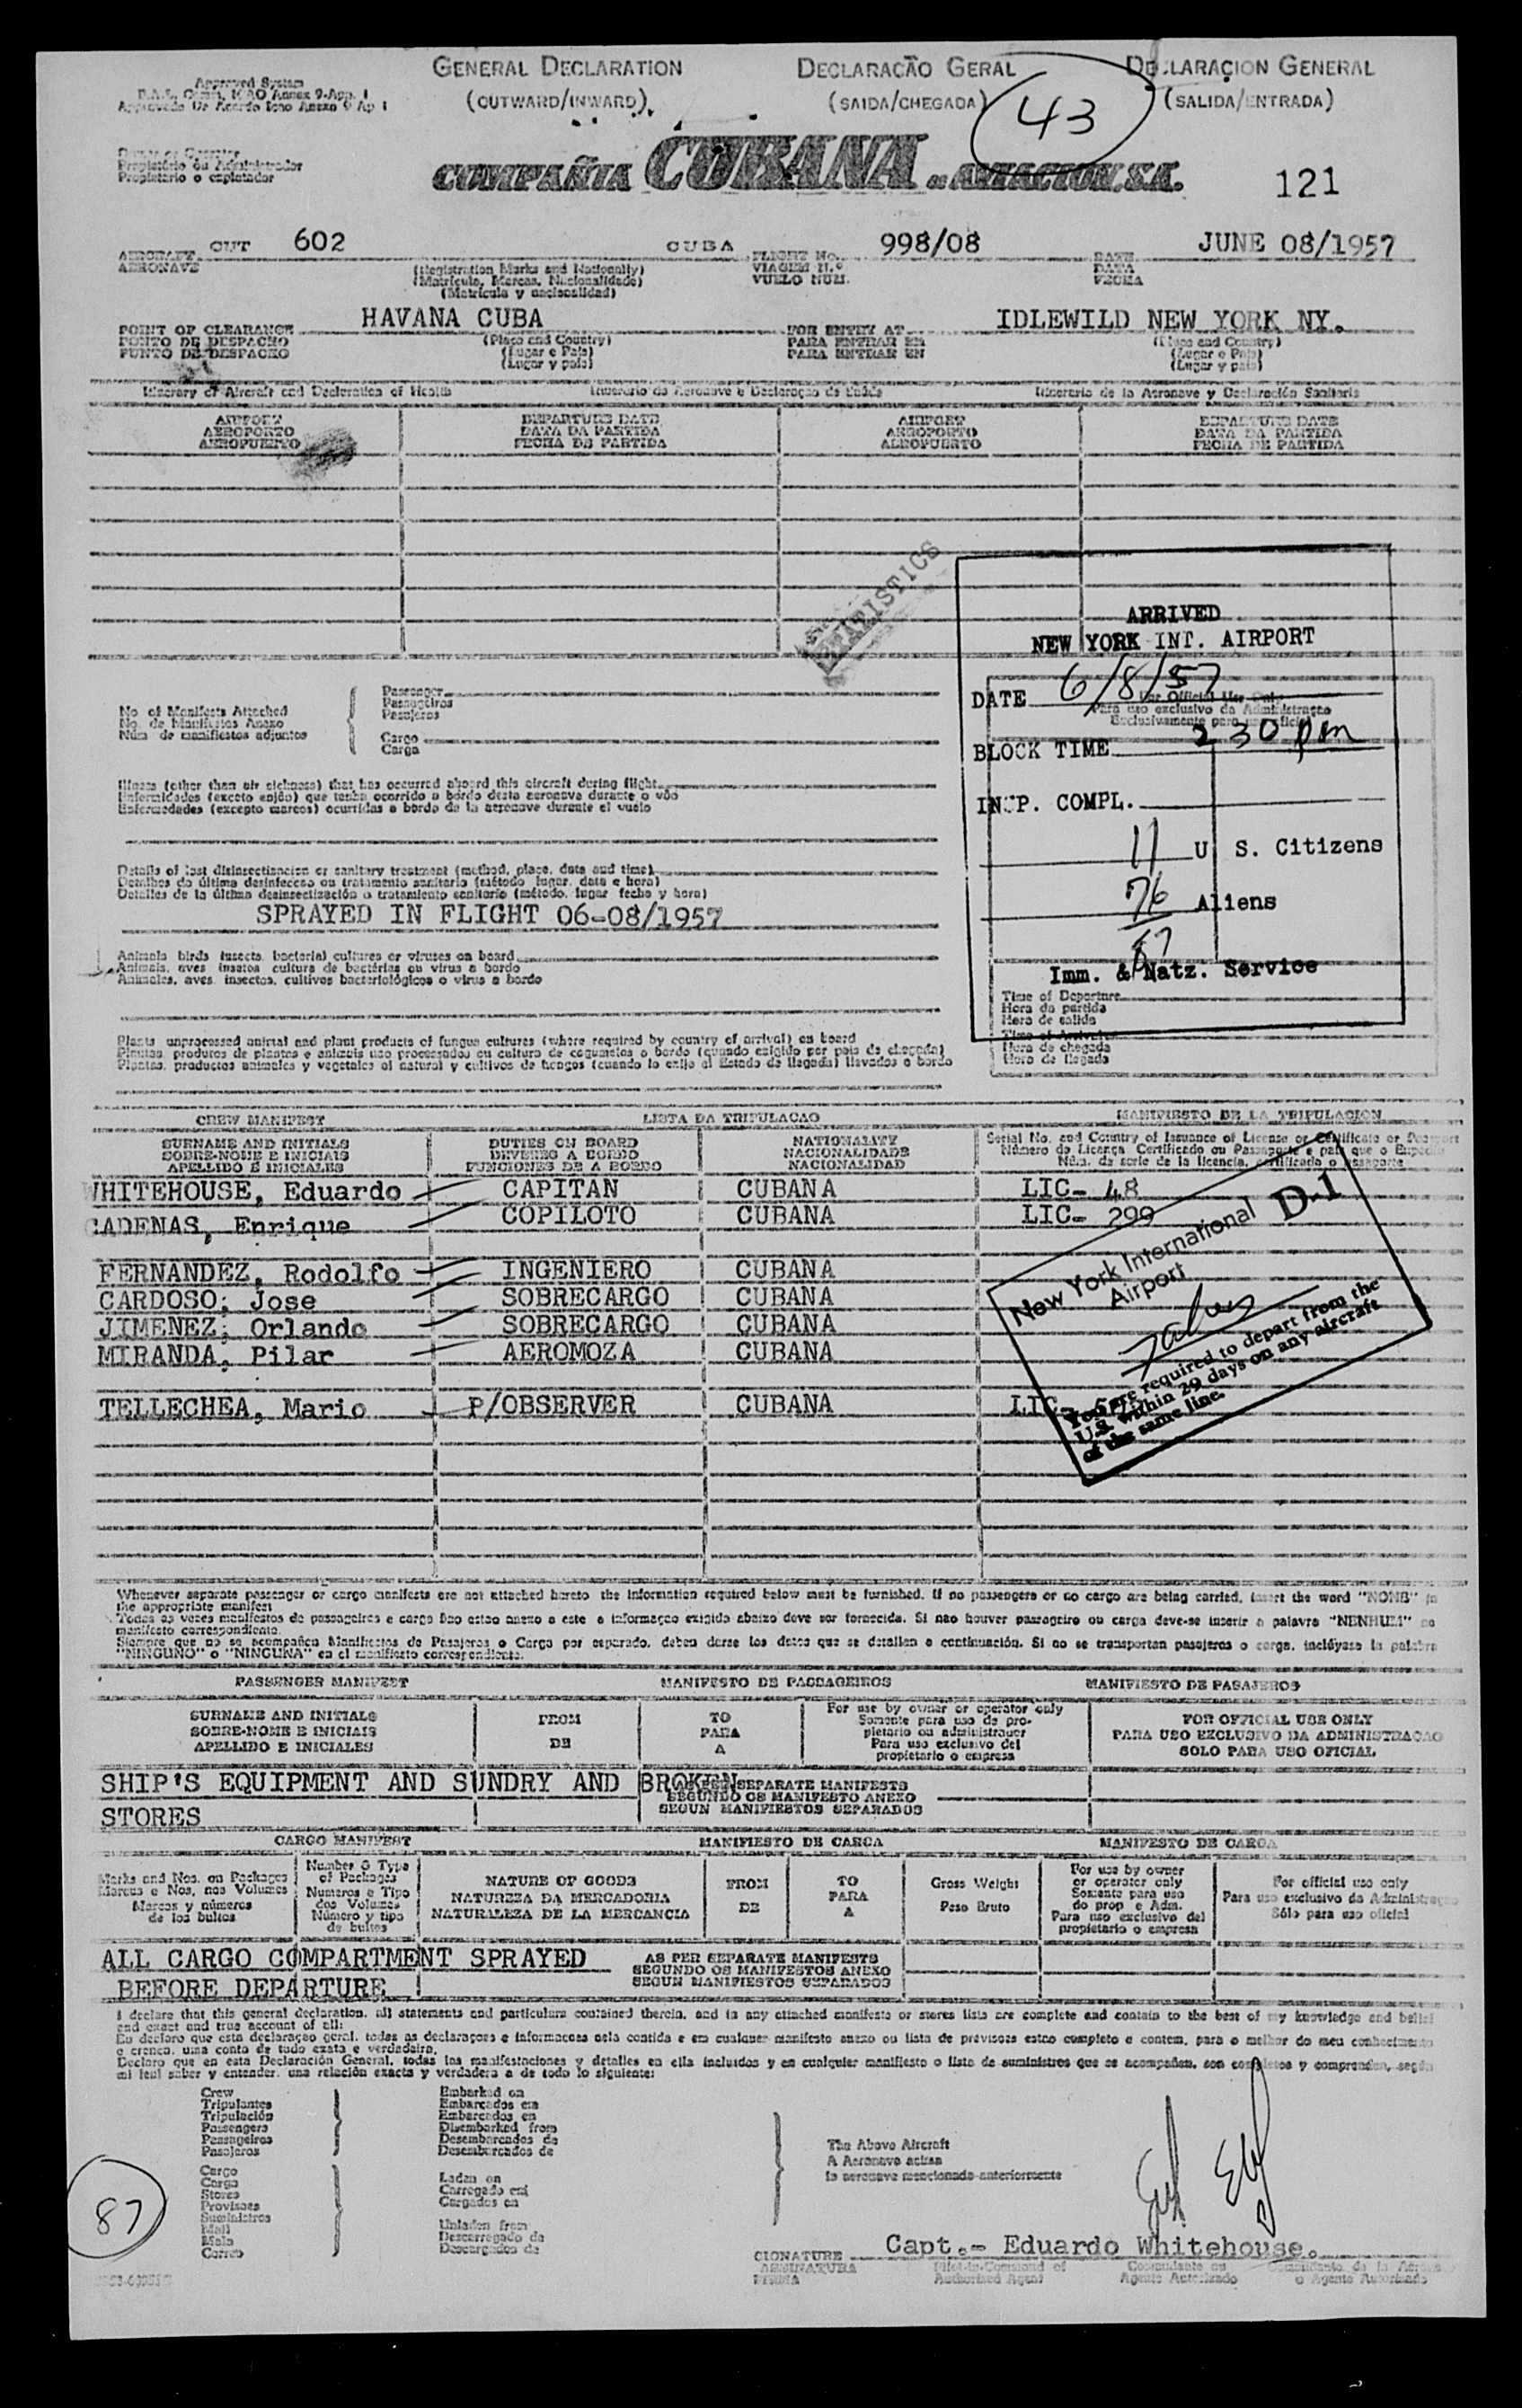 Approved System
GENERAL DECLARATION
(OUTWARD/INWARD)
DECLARAÇÃO GERAL
(SAIDA/CHEGADA)
DECLARACION GENERAL
(SALIDA/ENTRADA)
43
Propietário ou Administrador
Propietario o explotador
COMPAÑIA CUBANA DE AVIACION, S.A.
121
AIRCRAFT CUT 602 CUBA
AERONAVE
(Registration Marks and Nationality)
(Matrícula, Marcas, Nacionalidade)
(Matricula y nacionalidad)
FLIGHT No. 998/08
VIAGEM N.º
VUELO NUM.
DATE JUNE 08/1957
DATA
FECHA
POINT OF CLEARANCE HAVANA CUBA
PONTO DE DESPACHO
PUNTO DE DESPACHO
(Place and Country)
(Lugar e Pais)
(Lugar y país)
FOR ENTRY AT IDLEWILD NEW YORK NY.
PARA ENTRAR EM
PARA ENTRAR EN
(Place and Country)
(Lugar e Pais)
(Lugar y país)
Itinerary of Aircraft and Declaration of Health
Itinerario da Aeronave e Declaração de Saúde
Itinerario de la Aeronave y Declaración Sanitaria
AIRPORT DEPARTURE DATE AIRPORT DEPARTURE DATE
AEROPORTO DATA DA PARTIDA AEROPORTO DATA DA PARTIDA
AEROPUERTO FECHA DE PARTIDA AEROPUERTO FECHA DE PARTIDA
STATISTICS
ARRIVED
NEW YORK INT. AIRPORT
DATE 6/8/57
For Official Use Only
Para uso exclusivo da Administraçao
BLOCK TIME 2 30 pm
INSP. COMPL.
11 U S. Citizens
76 Aliens
87
Imm. & Natz. Service
Time of Departure
Hora da partida
Hora de salida
Time of Arrival
Hora de chegada
Hora de llegada
No of Manifests Attached
No. de Manifestos Anexo
Núm de manifiestos adjuntos
Passenger
Passageiros
Pasajeros
Cargo
Carga
Illness (other than air sickness) that has occurred aboard this aircraft during flight
Enfermidades (exceto enjôo) que tenha ocorrido a bordo desta aeronave durante o vôo
Enfermedades (excepto mareos) ocurridas a bordo de la aeronave durante el vuelo
Details of last disinsectisacion or sanitary treatment (method, place, date and time)
Detalhes da última desinfeccao ou tratamento sanitario (método lugar, data e hora)
Detalles de la última desinsectización o tratamiento sanitario (método, lugar fecha y hora)
SPRAYED IN FLIGHT 06-08/1957
Animals birds insects, bacterial cultures or viruses on board
Animais, aves insetos cultura de bactérias ou virus a bordo
Animales, aves, insectos, cultivos bacteriológicos o virus a bordo
Plants unprocessed animal and plant products of fungus cultures (where required by country of arrival) on board
Plantas, produtos de plantas e animais nao processados ou cultura de cogumelos a bordo (quando exigido por pais de chegada)
Plantas, productos animales y vegetales al natural y cultivos de hongos (cuando lo exija el Estado de llegada) llevados a bordo
CREW MANIFEST LISTA DA TRIPULACAO MANIFIESTO DE LA TRIPULACION
SURNAME AND INITIALS DUTIES ON BOARD NATIONALITY
SOBRE-NOME E INICIAIS DEVERES A BORDO NACIONALIDADE
APELLIDO E INICIALES FUNCIONES DE A BORDO NACIONALIDAD
Serial No. and Country of Issuance of License or Certificate or Passport
Número da Licença Certificado ou Passaporte e pais que o Expediu
Núm. de serie de la licencia, certificado o pasaporte
WHITEHOUSE, Eduardo CAPITAN CUBANA LIC- 48
CADENAS, Enrique COPILOTO CUBANA LIC- 299
FERNANDEZ, Rodolfo INGENIERO CUBANA
CARDOSO; Jose SOBRECARGO CUBANA
JIMENEZ; Orlando SOBRECARGO CUBANA
MIRANDA, Pilar AEROMOZA CUBANA
TELLECHEA, Mario P/OBSERVER CUBANA LIC
New York International D-1
Airport
You are required to depart from the
U.S. within 29 days on any aircraft
of the same line.
Whenever separate passenger or cargo manifests are not attached hereto the information required below must be furnished. If no passengers or no cargo are being carried, insert the word "NONE" in
the appropriate manifest
Todas as vezes manifestos de passageiros e carga nao estao anexo a este a informaçao exigida abaixo deve ser fornecida. Si nao houver passageiro ou carga deve-se inserir a palavra "NENHUM" no
manifesto correspondiente.
Siempre que no se acompañen Manifiestos de Pasajeros o Carga por separado, deben darse los datos que se detallan a continuación. Si no se transportan pasajeros o carga, inclúyase la palabra
"NINGUNO" o "NINGUNA" en el manifiesto correspondiente.
PASSENGER MANIFEST MANIFESTO DE PASSAGEIROS MANIFIESTO DE PASAJEROS
SURNAME AND INITIALS
SOBRE-NOME E INICIAIS
APELLIDO E INICIALES
FROM
DE
TO
PARA
A
For use by owner or operator only
Somente para uso do pro-
pietario ou administrador
Para uso exclusivo del
propietario o empresa
FOR OFFICIAL USE ONLY
PARA USO EXCLUSIVO DA ADMINISTRAÇAO
SOLO PARA USO OFICIAL
SHIP'S EQUIPMENT AND SUNDRY AND BROKEN
STORES
SEPARATE MANIFESTS
SEGUNDO OS MANIFESTO ANEXO
SEGUN MANIFIESTOS SEPARADOS
CARGO MANIFEST MANIFIESTO DE CARGA MANIFESTO DE CARGA
Marks and Nos. on Packages
Marcas e Nos, nos Volumes
Marcas y números
de los bultos
Number & Type
of Packages
Numeros e Tipo
dos Volumes
Número y tipo
de bultos
NATURE OF GOODS
NATUREZA DA MERCADORIA
NATURALEZA DE LA MERCANCIA
FROM
DE
TO
PARA
A
Gross Weight
Peso Bruto
For use by owner
or operator only
Somente para uso
do prop e Adm.
Para uso exclusivo del
propietario o empresa
For official use only
Para uso exclusivo da Administraçao
Sólo para uso oficial
ALL CARGO COMPARTMENT SPRAYED
BEFORE DEPARTURE
AS PER SEPARATE MANIFESTS
SEGUNDO OS MANIFESTOS ANEXO
SEGUN MANIFIESTOS SEPARADOS
I declare that this general declaration, all statements and particulars contained therein, and in any attached manifests or stores lists are complete and contain to the best of my knowledge and belief
and exact and true account of all:
Eu declaro que esta declaraçao geral, todas as declaraçoes e informacoes nela contida e em cualquer manifesto anexo ou lista de previsoes estao completo e contem, para o melhor do meu conhecimento
e crenca, uma conta de tudo exata e verdadeira.
Declaro que en esta Declaración General, todas las manifestaciones y detalles en ella incluidos y en cualquier manifiesto o lista de suministros que se acompañan, son completos y comprenden, según
mi leal saber y entender, una relación exacta y verdadera a de todo lo siguiente:
Crew
Tripulantes
Tripulación
Passengers
Passageiros
Pasajeros
Embarked on
Embarcados em
Embarcados en
Disembarked from
Desembarcados de
Desembarcados de
Cargo
Carga
Stores
Provisoes
Suministros
Mail
Mala
Correo
Laden on
Carregado em
Cargados en
Unladen from
Descarregado de
Descargados de
The Above Aircraft
A Aeronave acima
la aeronave mencionada anteriormente
87
SIGNATURE Capt.- Eduardo Whitehouse.
ASSINATURA
FIRMA
Pilot-in-Command of
Authorized Agent
Comandante ou
Agente Autorizado
Comandante de la Aeronave
o Agente Autorizado